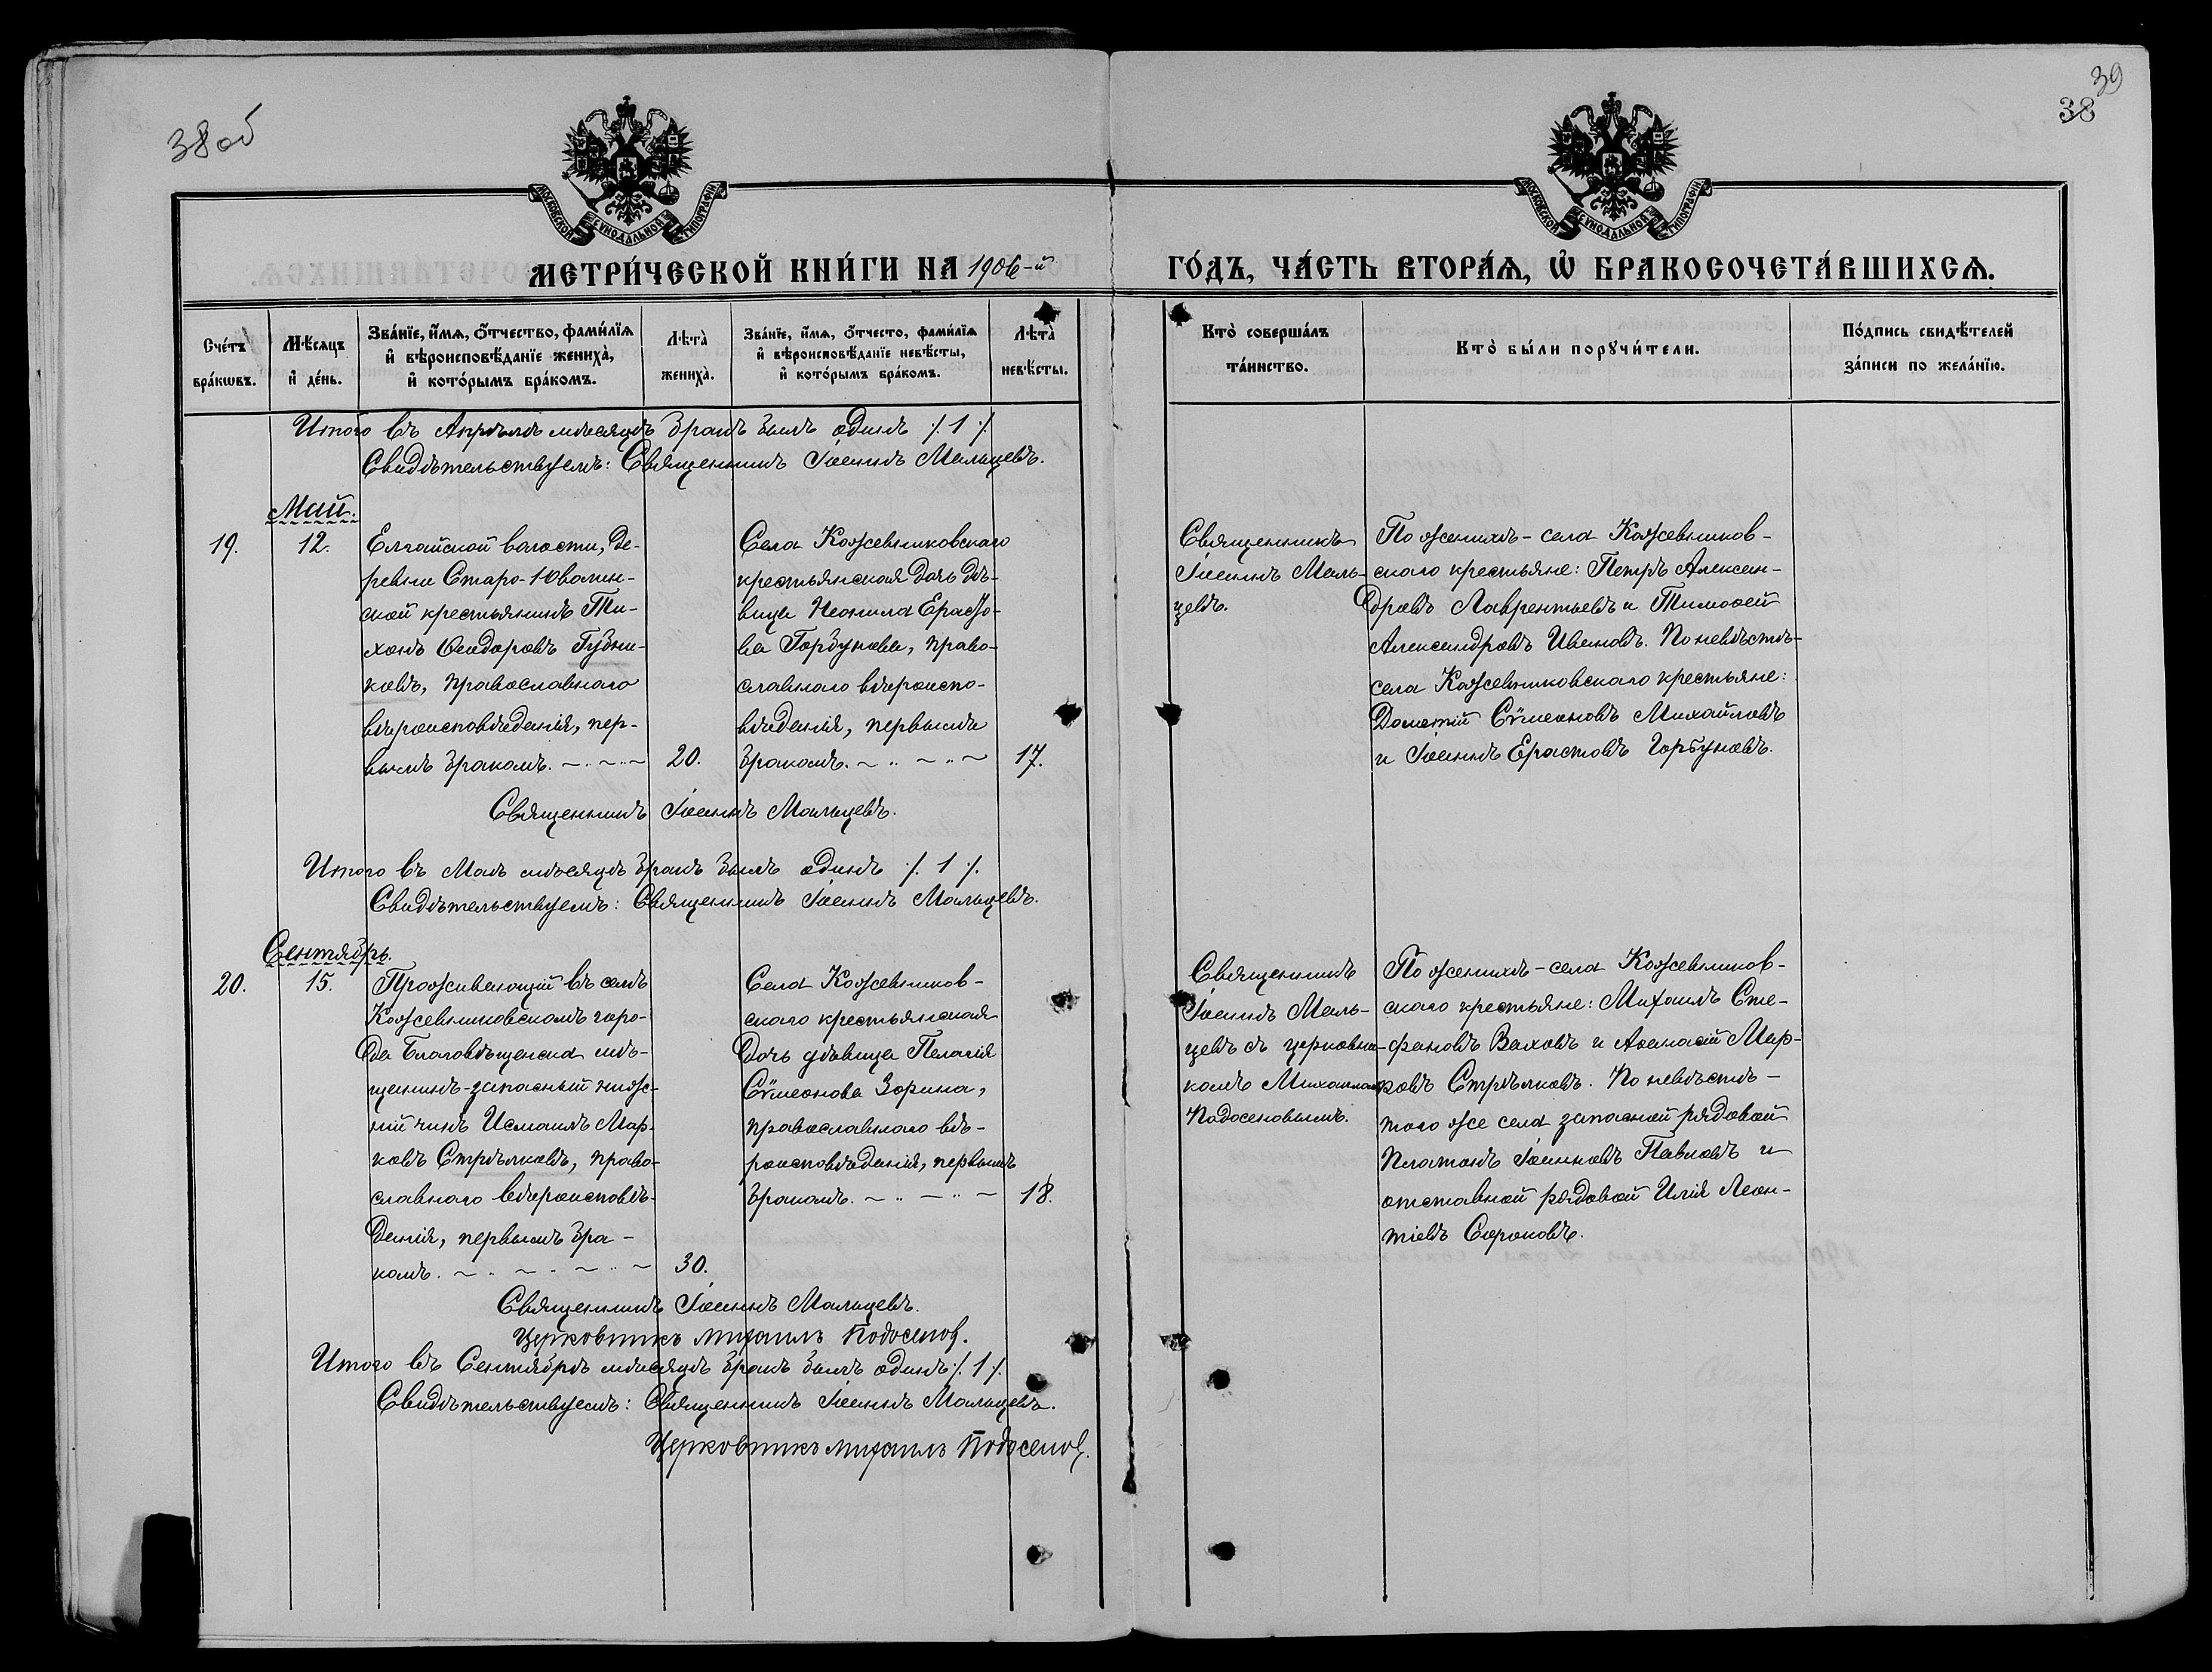 38об
39
38
МОСКОВСКОЙ СУНОДАЛЬНОЙ ТИПОГРАФІИ
МОСКОВСКОЙ СУНОДАЛЬНОЙ ТИПОГРАФІИ
МЕТРИ́ЧЕСКОЙ КНИ́ГИ НА 1906-й ГО́ДЪ, ЧА́СТЬ ВТОРА́Ѧ, Ѽ БРАКОСОЧЕТА́ВШИХСѦ.
Сче́тъ бра́кωвъ.
Мѣ́сяцъ и҆ де́нь.
Зва́нїе, и҆́мѧ, ѻ҆́тчество, фами́лїѧ
и҆ вѣроисповѣ́данїе жениха̀,
и҆ кото́рымъ бра́комъ.
Лѣта̀ жениха̀.
Зва́нїе, и҆́мѧ, ѻ҆́тчесто, фами́лїѧ
и҆ вѣроисповѣ́данїе невѣ́сты,
и҆ кото́рымъ бра́комъ.
Лѣта̀ невѣ́сты.
Кто̀ соверша́лъ
та́инство.
Кто̀ бы́ли порꙋчи́тели.
По́дпись свидѣ́телей
за́писи по жела́нїю.
Итого въ Апрѣлѣ мѣсяцѣ бракъ былъ одинъ /. 1 /.
Свидѣтельствуемъ: Священникъ Іоаннъ Мальцевъ.
Май.
19.
12.
Елгайской волости, де-
ревни Старо-Ювалин-
ской крестьянинъ Ти-
хонъ Ѳеодоровъ Губни-
ковъ, православнаго
вѣроисповѣданія, пер-
вымъ бракомъ.
20.
Села Кожевниковскаго
крестьянская дочь дѣ-
вица Неонила Ерасто-
ва Горбунова, право-
славнаго вѣроиспо-
вѣданія, первымъ
бракомъ.
17.
Священникъ
Іоаннъ Маль-
цевъ.
По женихѣ - села Кожевников-
скаго крестьяне: Петръ Алексан-
дровъ Лаврентьевъ и Тимоѳей
Александровъ Ивановъ. По невѣстѣ-
села Кожевниковскаго крестьяне:
Дометій Сѵмеоновъ Михайловъ
и Іоаннъ Ерастовъ Горбуновъ.
Священникъ Іоаннъ Мальцевъ.
Итого въ Маѣ мѣсяцѣ бракъ былъ одинъ /. 1 /.
Свидѣтельствуемъ: Священникъ Іоаннъ Мальцевъ.
Сентябрь.
20.
15.
Проживающій въ селѣ
Кожевниковскомъ горо-
да Благовѣщенска мѣ-
щанинъ-запасный ниж-
ній чинъ Исмаилъ Мар-
ковъ Стрѣлковъ, право-
славнаго вѣроисповѣ-
данія, первымъ бра-
комъ.
30.
Села Кожевников-
скаго крестьянская
дочь дѣвица Пелагія
Сѵмеонова Зорина,
православнаго вѣ-
роисповѣданія, первымъ
бракомъ.
18.
Священникъ
Іоаннъ Маль-
цевъ съ церковни-
комъ Михаиломъ
Подосеновымъ.
По женихѣ - села Кожевников-
скаго крестьяне: Михаилъ Сте-
фановъ Ваховъ и Аѳанасій Мар-
ковъ Стрѣлковъ. По невѣстѣ -
того же села запасной рядовой
Платонъ Іоанновъ Павловъ и
отставной рядовой Илія Леон-
тіевъ Сороковъ.
Священникъ Іоаннъ Мальцевъ.
Церковникъ Михаилъ Подосенов.
Итого въ Сентябрѣ мѣсяцѣ бракъ былъ одинъ /. 1 /.
Свидѣтельствуемъ: Священникъ Іоаннъ Мальцевъ.
Церковникъ Михаилъ Подосенов.